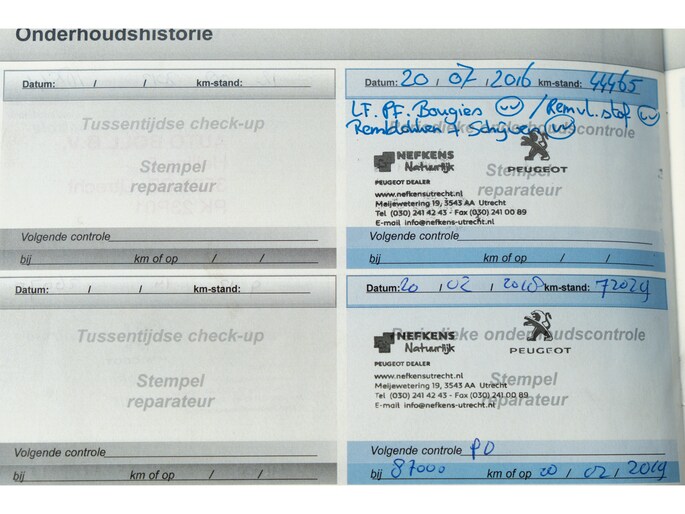 Onderhoudshistorie
Datum: / / km-stand:
Tussentijdse check-up
Stempel
reparateur
Volgende controle
bij km of op / /
Datum: 20 / 07 / 2016 km-stand: 44465
LF. PF. Bougies VV / Remvl. stof VV
Remblokken + Schijven VV
Periodieke onderhoudscontrole
NEFKENS
Natuurlijk
PEUGEOT
PEUGEOT DEALER
Stempel
reparateur
www.nefkensutrecht.nl
Meijewetering 19, 3543 AA Utrecht
Tel (030) 241 42 43 - Fax (030) 241 00 89
E-mail info@nefkens-utrecht.nl
Volgende controle
bij km of op / /
Datum: / / km-stand:
Tussentijdse check-up
Stempel
reparateur
Volgende controle
bij km of op / /
Datum: 20 / 02 / 2018 km-stand: 72029
Periodieke onderhoudscontrole
NEFKENS
Natuurlijk
PEUGEOT
PEUGEOT DEALER
Stempel
reparateur
www.nefkensutrecht.nl
Meijewetering 19, 3543 AA Utrecht
Tel (030) 241 42 43 - Fax (030) 241 00 89
E-mail info@nefkens-utrecht.nl
Volgende controle PO
bij 87000 km of op 20 / 02 / 2019